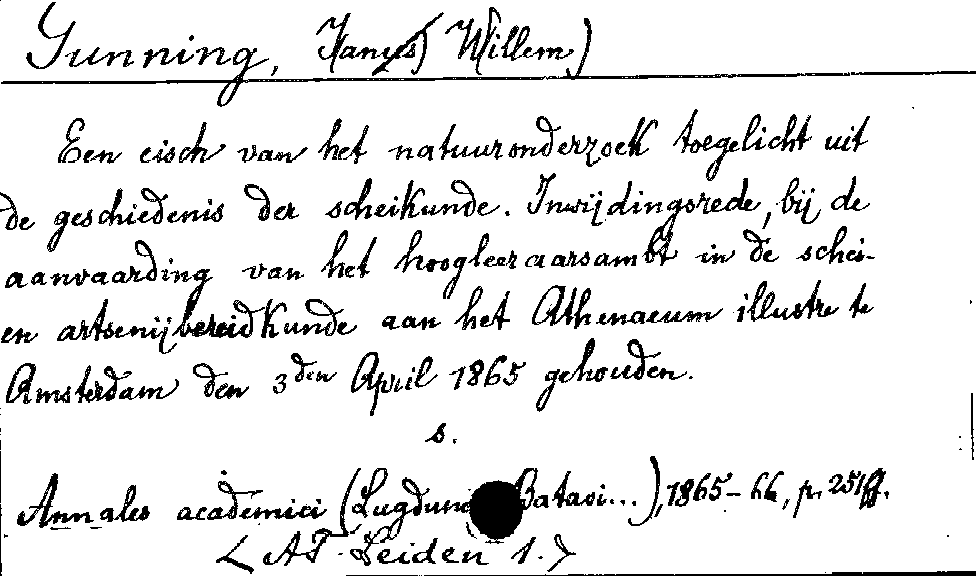 Gunning, Jan(us) Willem)
Een eisch van het natuuronderzoek toegelicht uit
de geschiedenis der scheikunde. Inwijdingsrede, bij de
aanvaarding van het hoogleeraarsambt in de schei-
en artsenijbereidkunde aan het Athenaeum illustre te
Amsterdam den 3den April 1865 gehouden.
s.
Annales academici (Lugduno Batavi...), 1865-66, p. 251ff.
< AT. Leiden 1. >